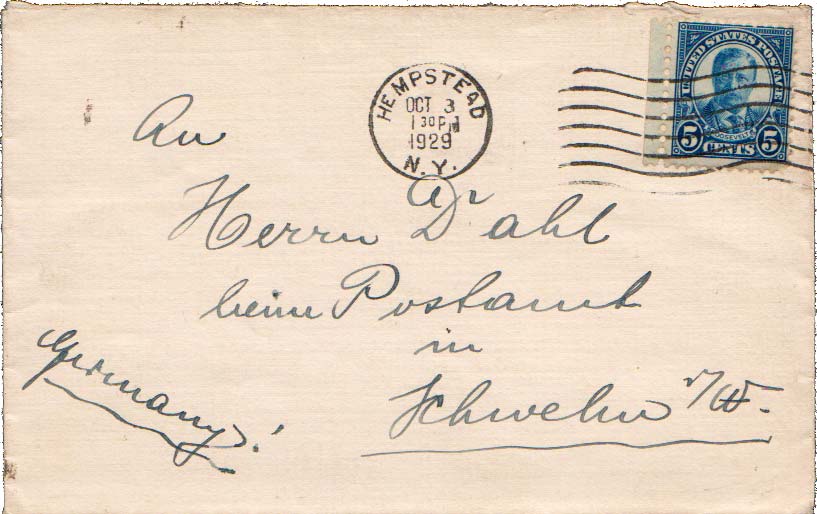 UNITED STATES POSTAGE
ROOSEVELT
5 CENTS 5
HEMPSTEAD
OCT 3
1 30 PM
1929
N. Y.
An
Herrn Dahl
beim Postamt
in
Schwelm i/W.
Germany!